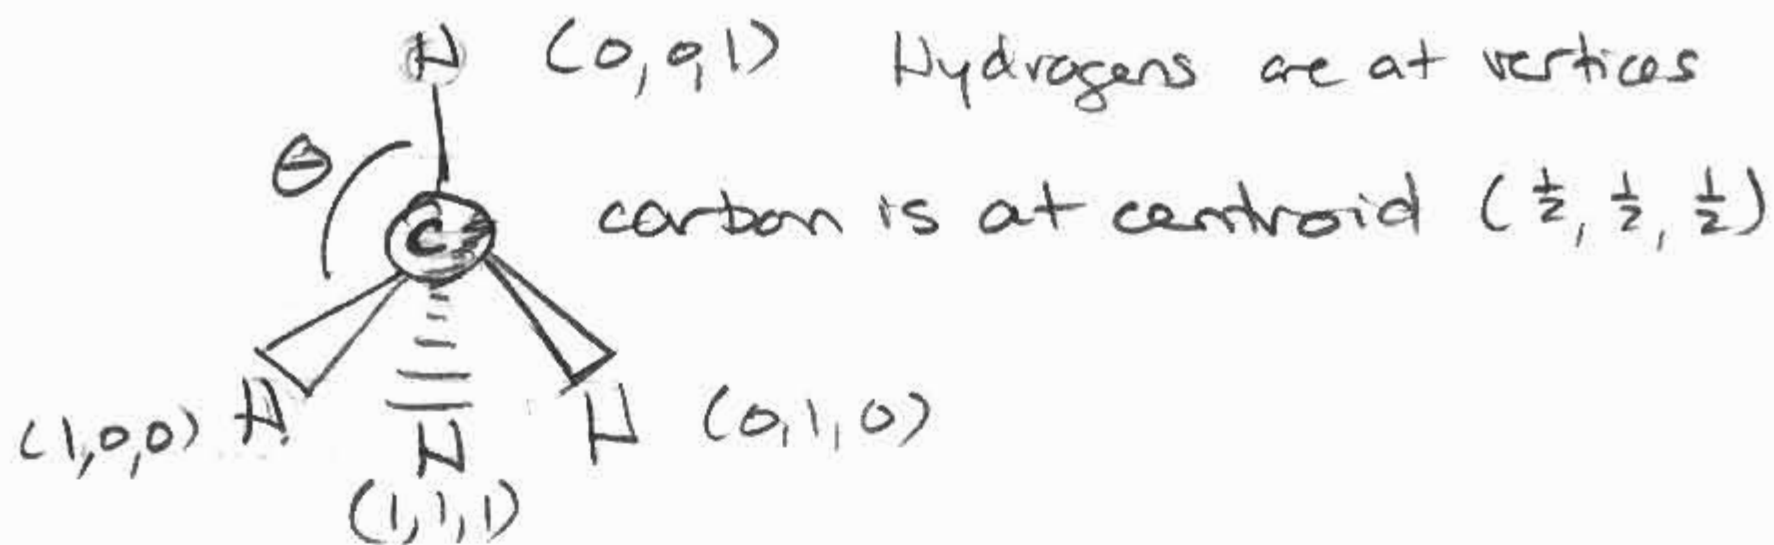 H (0,0,1) Hydrogens are at vertices
θ
C carbon is at centroid (½, ½, ½)
(1,0,0) H H H (0,1,0)
(1,1,1)